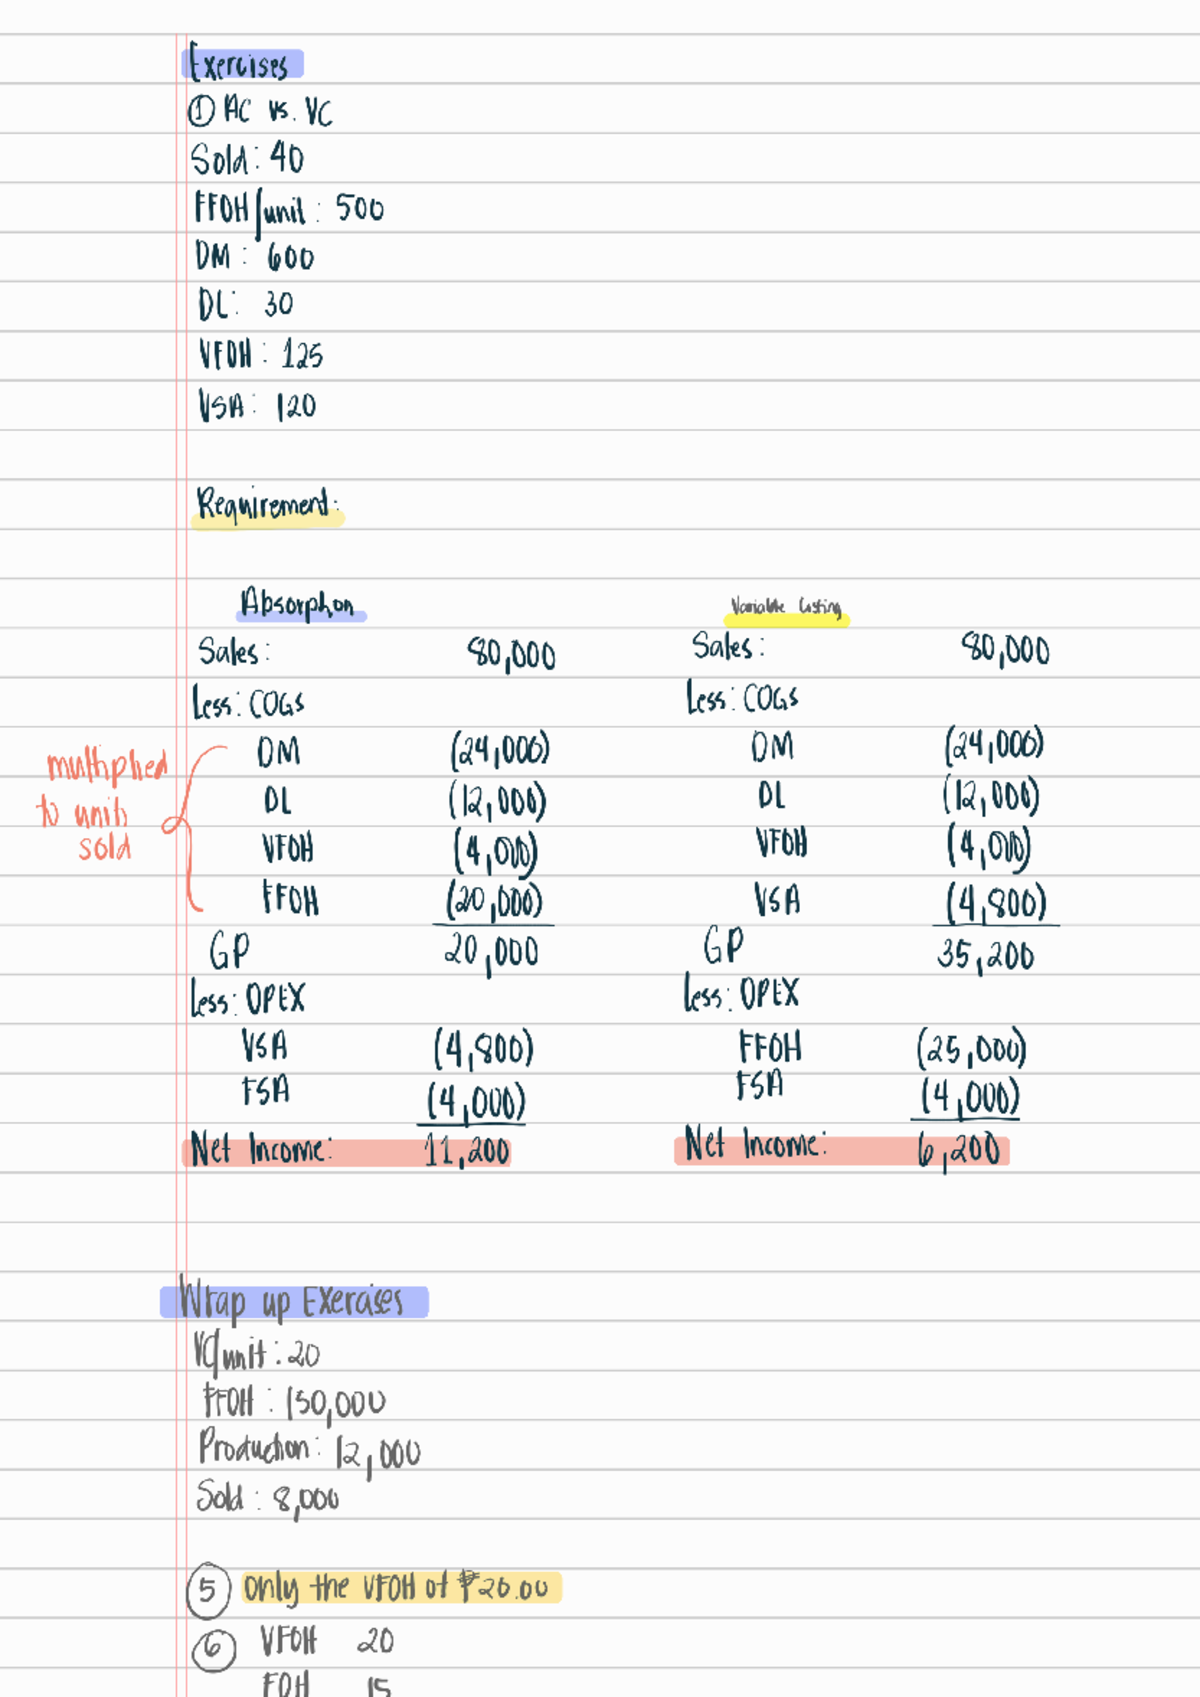 Exercises
① AC vs. VC
Sold: 40
FFOH/unit: 500
DM: 600
DL: 30
VFOH: 125
VSA: 120
Requirement:
Absorption Variable Costing
Sales: 80,000 Sales: 80,000
Less: COGS Less: COGS
DM (24,000) DM (24,000)
DL (12,000) DL (12,000)
VFOH (4,000) VFOH (4,000)
FFOH (20,000) VSA (4,800)
multiplied
to units
sold
GP 20,000 GP 35,200
Less: OPEX Less: OPEX
VSA (4,800) FFOH (25,000)
FSA (4,000) FSA (4,000)
Net Income: 11,200 Net Income: 6,200
Wrap up Exercises
VC/unit: 20
FFOH: 150,000
Production: 12,000
Sold: 8,000
⑤ Only the VFOH of ₱20.00
⑥ VFOH 20
FOH 15